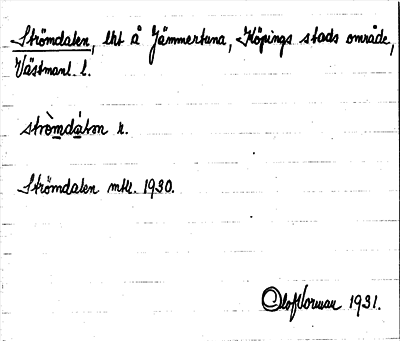 Strömdalen, lht å Jämmertuna, Köpings stads område,
Västmanl. l.
strò̀mdá̀lən n.
Strömdalen mtl. 1930.
Olof Norman 1931.